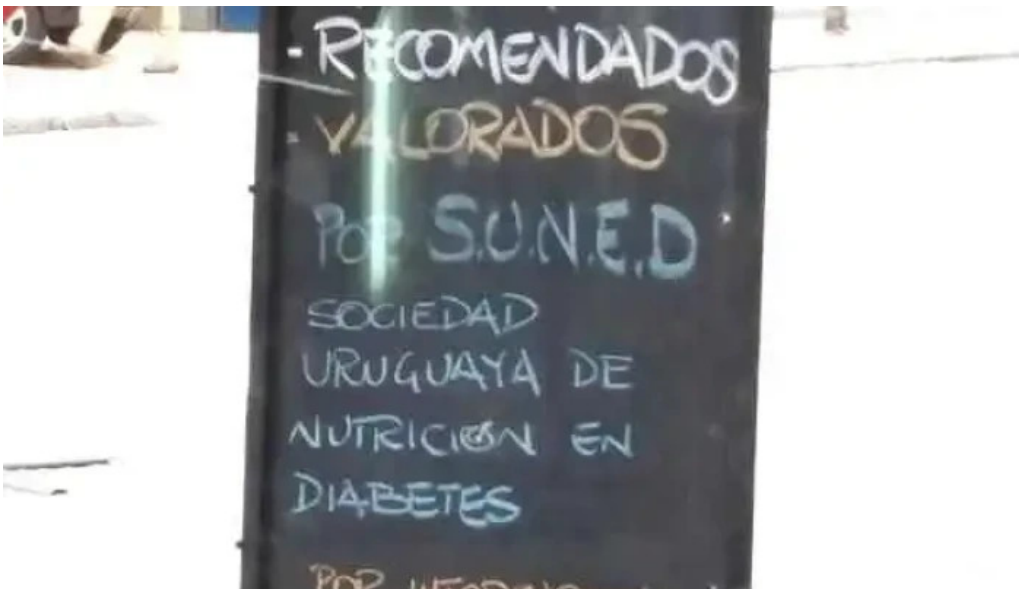 - RECOMENDADOS
- VALORADOS
POR S.U.N.E.D
SOCIEDAD
URUGUAYA DE
NUTRICIÓN EN
DIABETES
POR